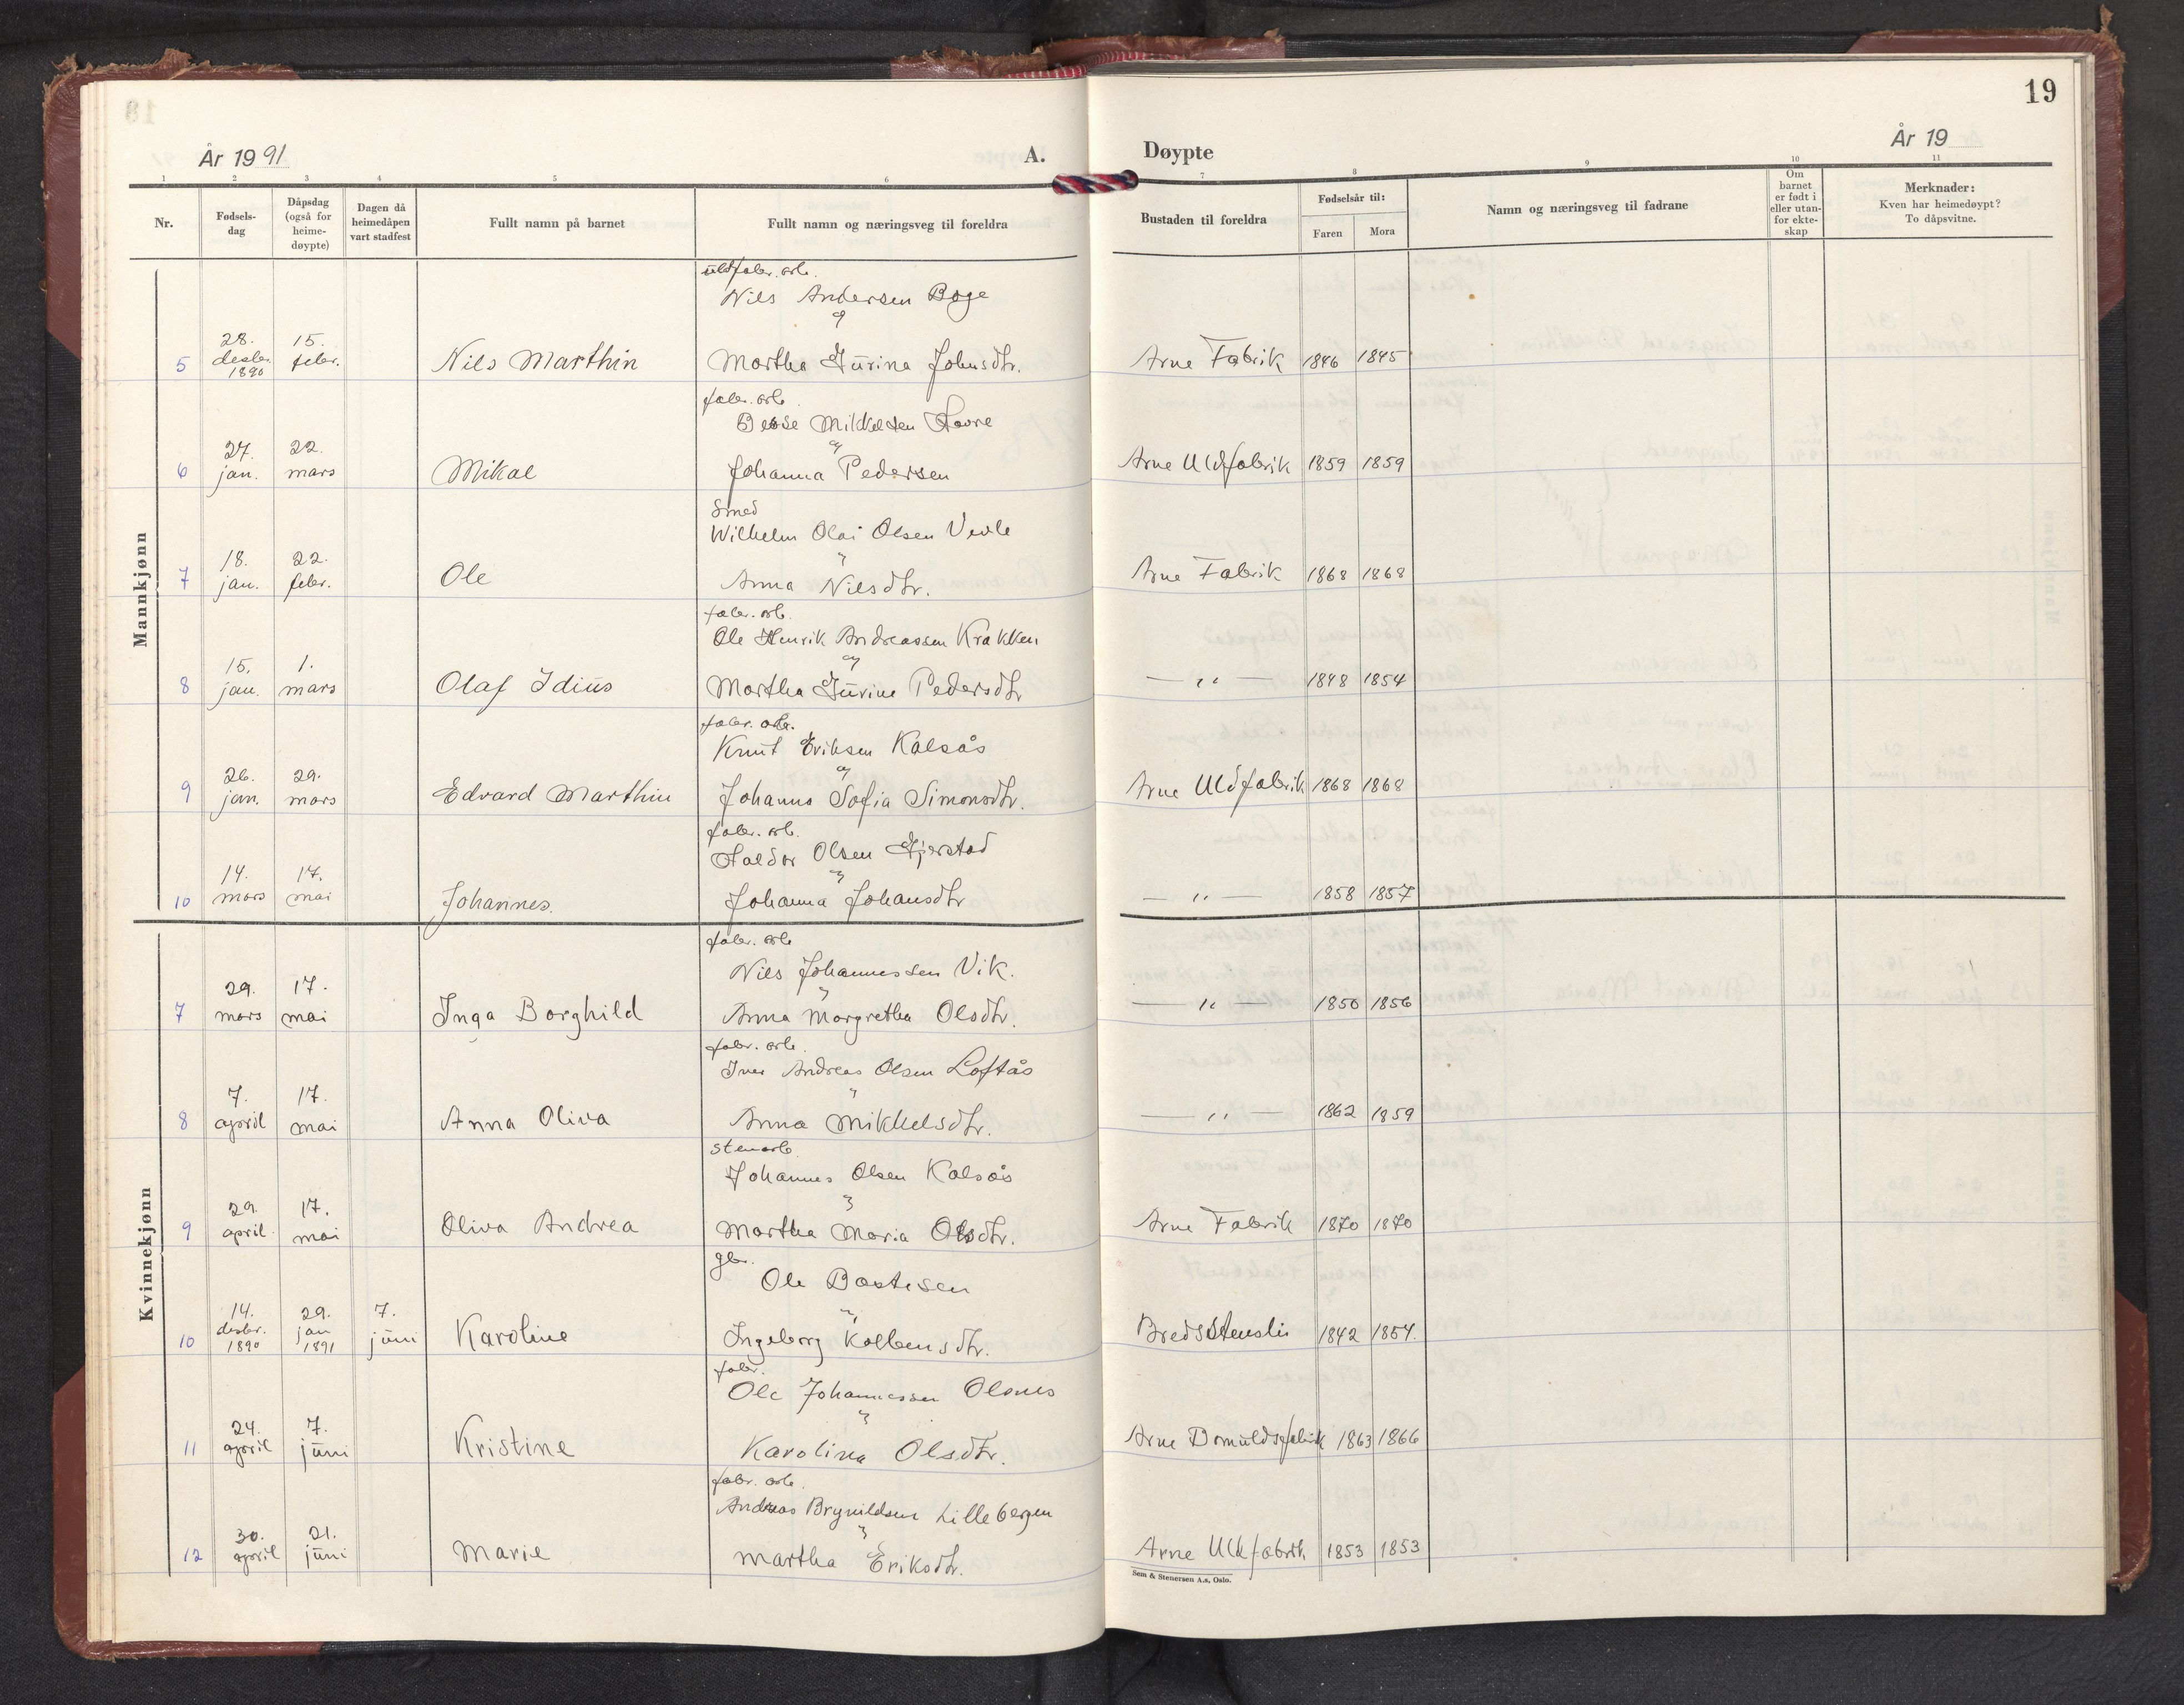 19
År 19 91
A.
Døypte
År 19
1 2 3 4 5 6 7 8 9 10 11
Nr.
Fødsels-
dag
Dåpsdag
(også for
heime-
døypte)
Dagen då
heimedåpen
vart stadfest
Fullt namn på barnet
Fullt namn og næringsveg til foreldra
Bustaden til foreldra
Fødselsår til:
Faren Mora
Namn og næringsveg til fadrane
Om
barnet
er født i
eller utan-
for ekte-
skap
Merknader:
Kven har heimedøypt?
To dåpsvitne.
Mannkjønn
uldfabr. arb.
Nils Andersen Boge
og
28. 15.
desbr. febr.
1890
5 Nils Marthin Martha Gurina Johnsdtr. Arne Fabrik 1846 1845
fabr. arb.
Besse Mikkelsen Hovre
og
27. 22.
6 jan. mars Mikal Johanna Pedersen Arne Uldfabrik 1859 1859
Smed
Wilhelm Olai Olsen Vevle
"
18. 22.
7 jan. febr. Ole Anna Nilsdtr. Arne Fabrik 1868 1868
fabr. arb.
Ole Henrik Andreassen Krakken
og
15. 1.
8 jan. mars Olaf Idius Martha Gurine Pedersdtr — " — 1848 1854
fabr. arb.
Knut Eriksen Kalsås
og
26. 29.
9 jan. mars Edvard Marthin Johanna Sofia Simonsdtr. Arne Uldfabrik 1868 1868
fabr. arb.
Haldor Olsen Gjerstad
og
14. 17.
10 mars mai Johannes. Johanna Johansdtr — " — 1858 1857
Kvinnekjønn
fabr. arb
Nils Johannessen Vik.
"
29. 17.
7 mars mai Inga Borghild Anna Margretha Olsdtr. — " — 1850 1856
fabr. arb.
Iver Andreas Olsen Loftås
"
7. 17.
8 april mai Anna Oliva Anna Mikkelsdtr. — " — 1862 1859
stenarb.
Johannes Olsen Kalsås
"
29. 17.
9 april mai Oliva Andrea Martha Maria Olsdtr. Arne Fabrik 1870 1870
gbr.
Ole Bastesen
"
14. 29. 7.
desbr. jan juni
1890 1891
10 Karoline Ingeborg Kolbensdtr. Bredstensli 1842 1854.
fabr.
Ole Johannessen Olsnes
"
24. 7.
11 april juni Kristine Karolina Olsdtr. Arne Bomuldsfabrik 1863 1866
fabr. arb.
Andreas Brynildsen Lillebergen
"
30. 21.
12 april juni Marie Martha Eriksdtr. Arne Uldfabrik 1853 1853
Sem & Stenersen A.s, Oslo.